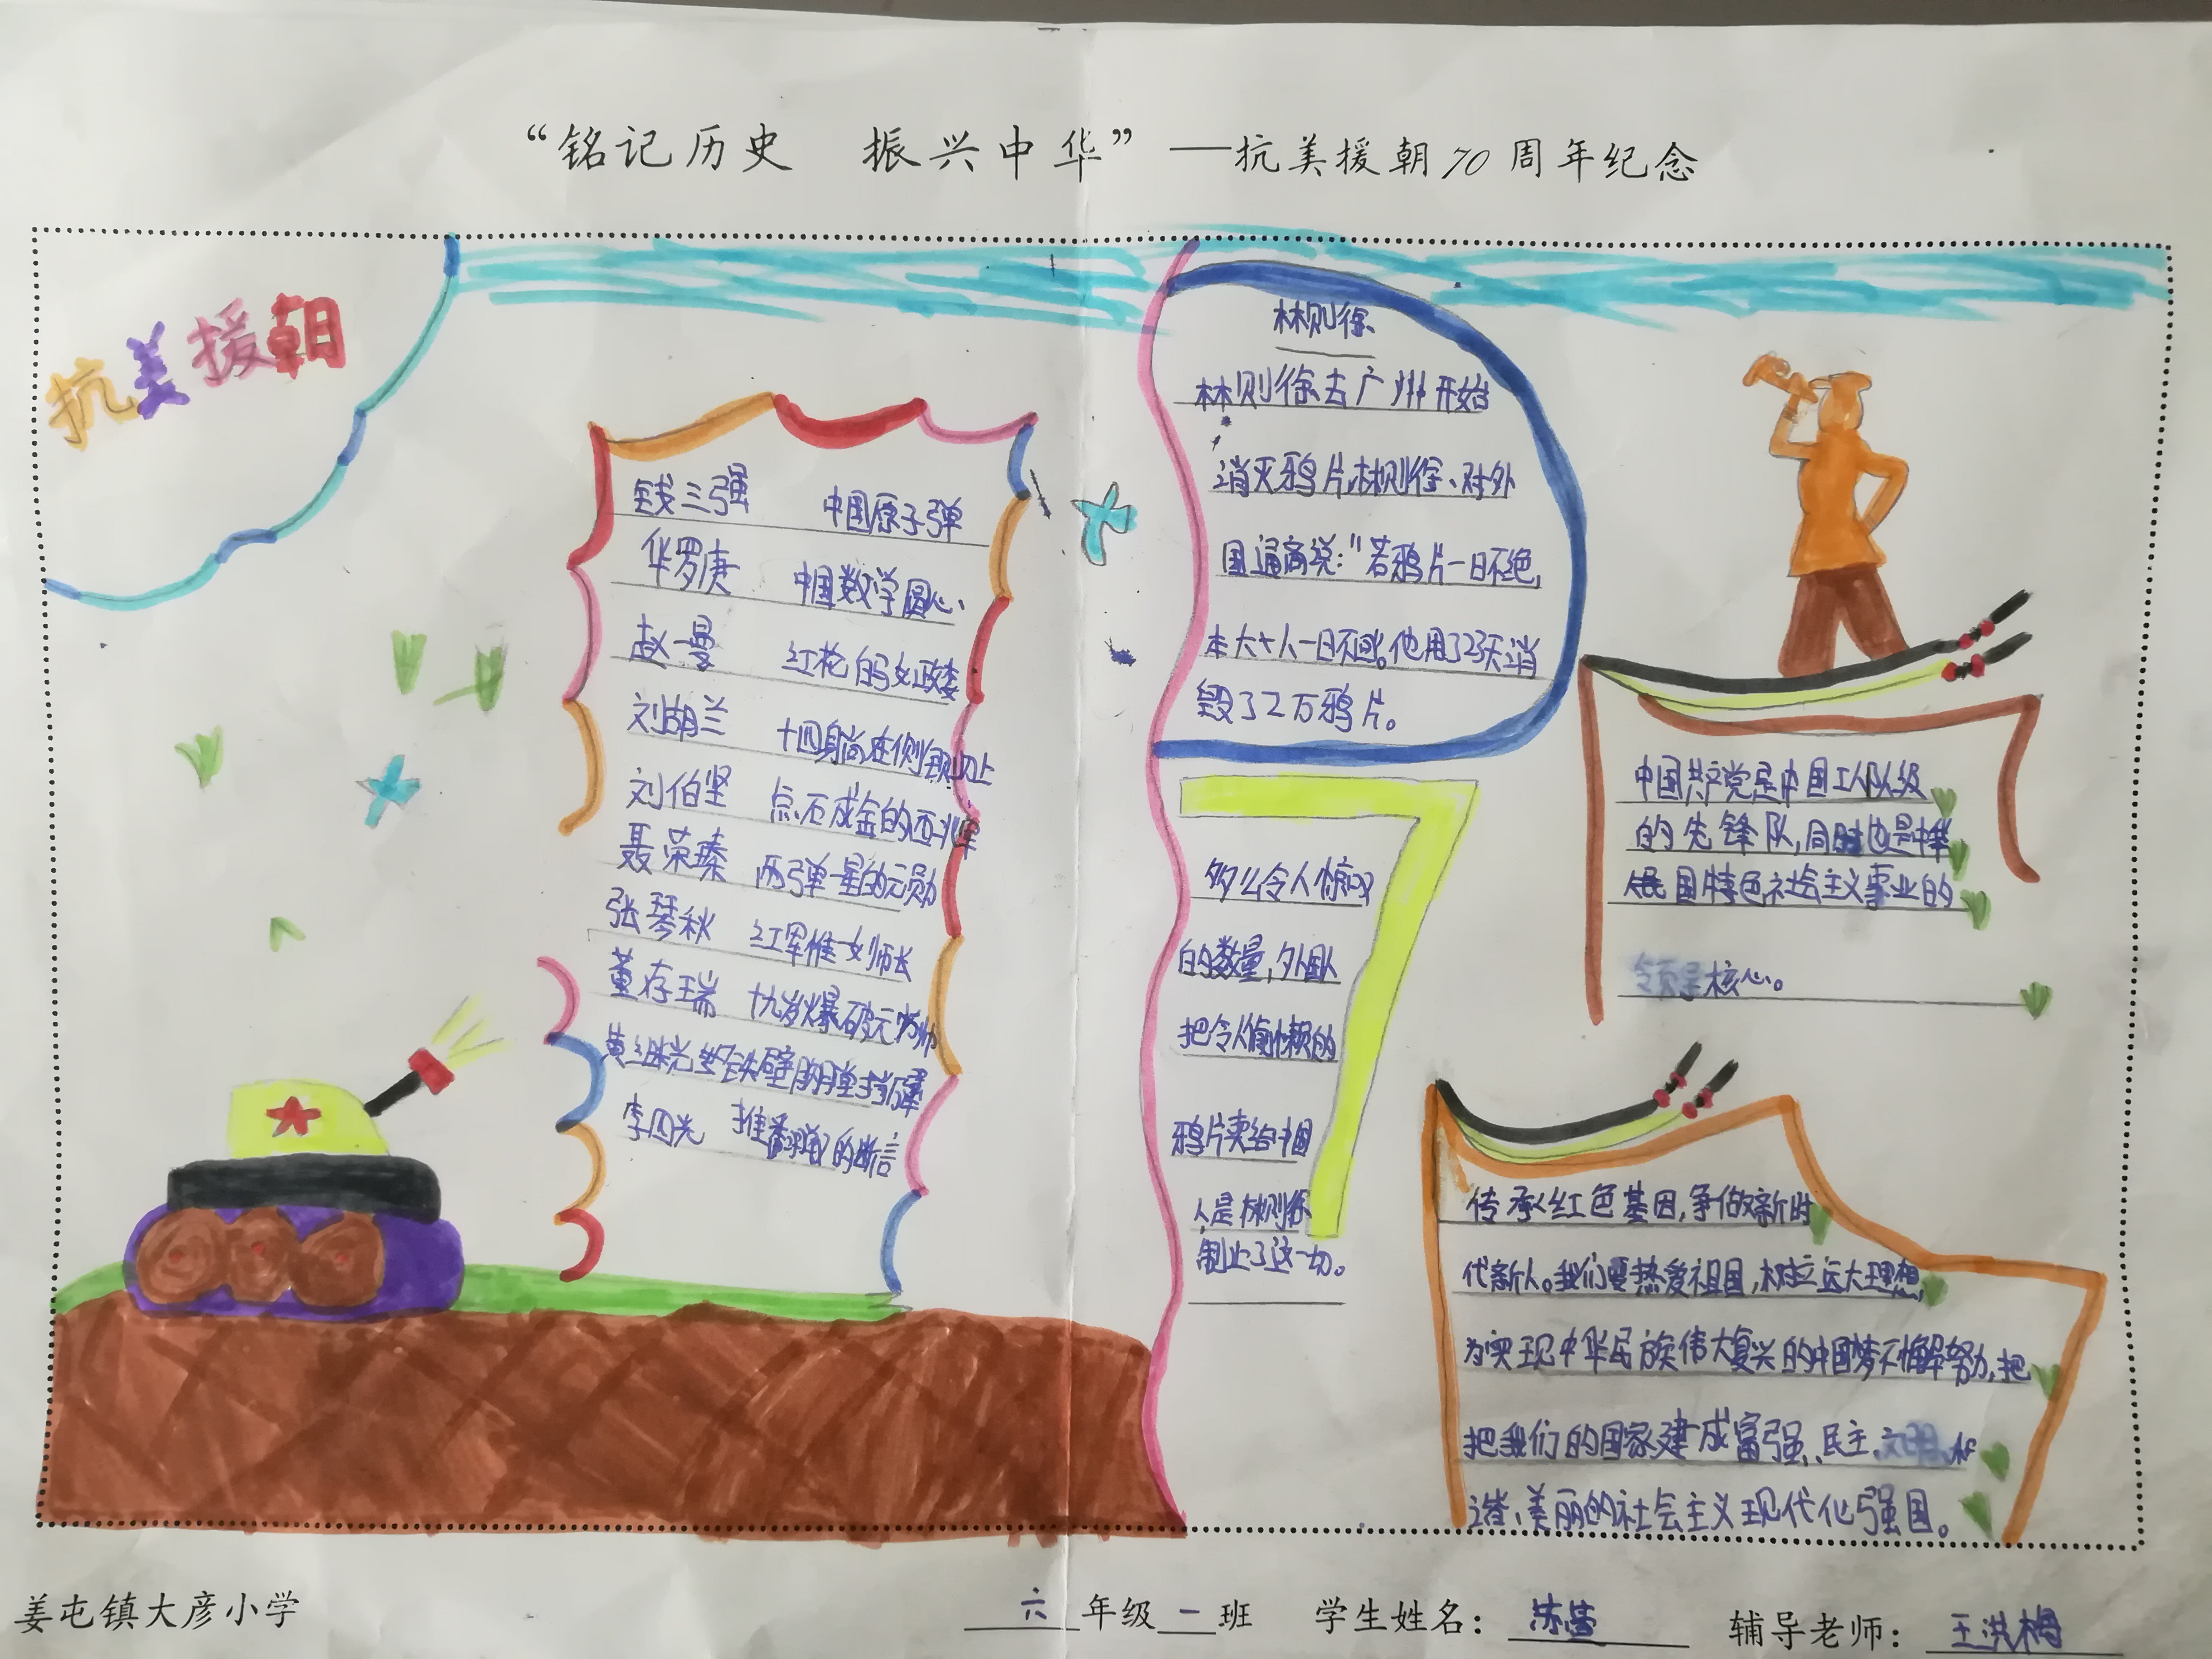 “铭记历史 振兴中华”——抗美援朝70周年纪念
抗美援朝
钱三强 中国原子弹
华罗庚 中国数学
赵一曼 红枪白马女政委
刘胡兰 十四
刘伯坚 点石成金的西北军
聂荣臻 两弹一星的元勋
张琴秋 红军惟一女师长
董存瑞 十九岁爆破元
黄继光 铁壁
李四光 推翻 的断言
林则徐
林则徐去广州开始
消灭鸦片,林则徐、对外
国通商说:“若鸦片一日不绝,
本大 人一日不回。他用了23天消
毁了2万鸦片。
多么令人惊叹
的数量,外国人
把令人 的
鸦片卖给中国
人是林则徐
制止了这一切。
中国共产党是中国工人队级
的先锋队,同时也是中华
国特色社会主义事业的
领导核心。
传承红色基因,争做新时
代新人。我们要热爱祖国,树立远大理想,
为实现中华民族伟大复兴的中国梦不懈努力,把
把我们的国家建成富强、民主、文明、和
谐、美丽的社会主义现代化强国。
姜屯镇大彦小学
六年级一班 学生姓名: 辅导老师:王洪梅